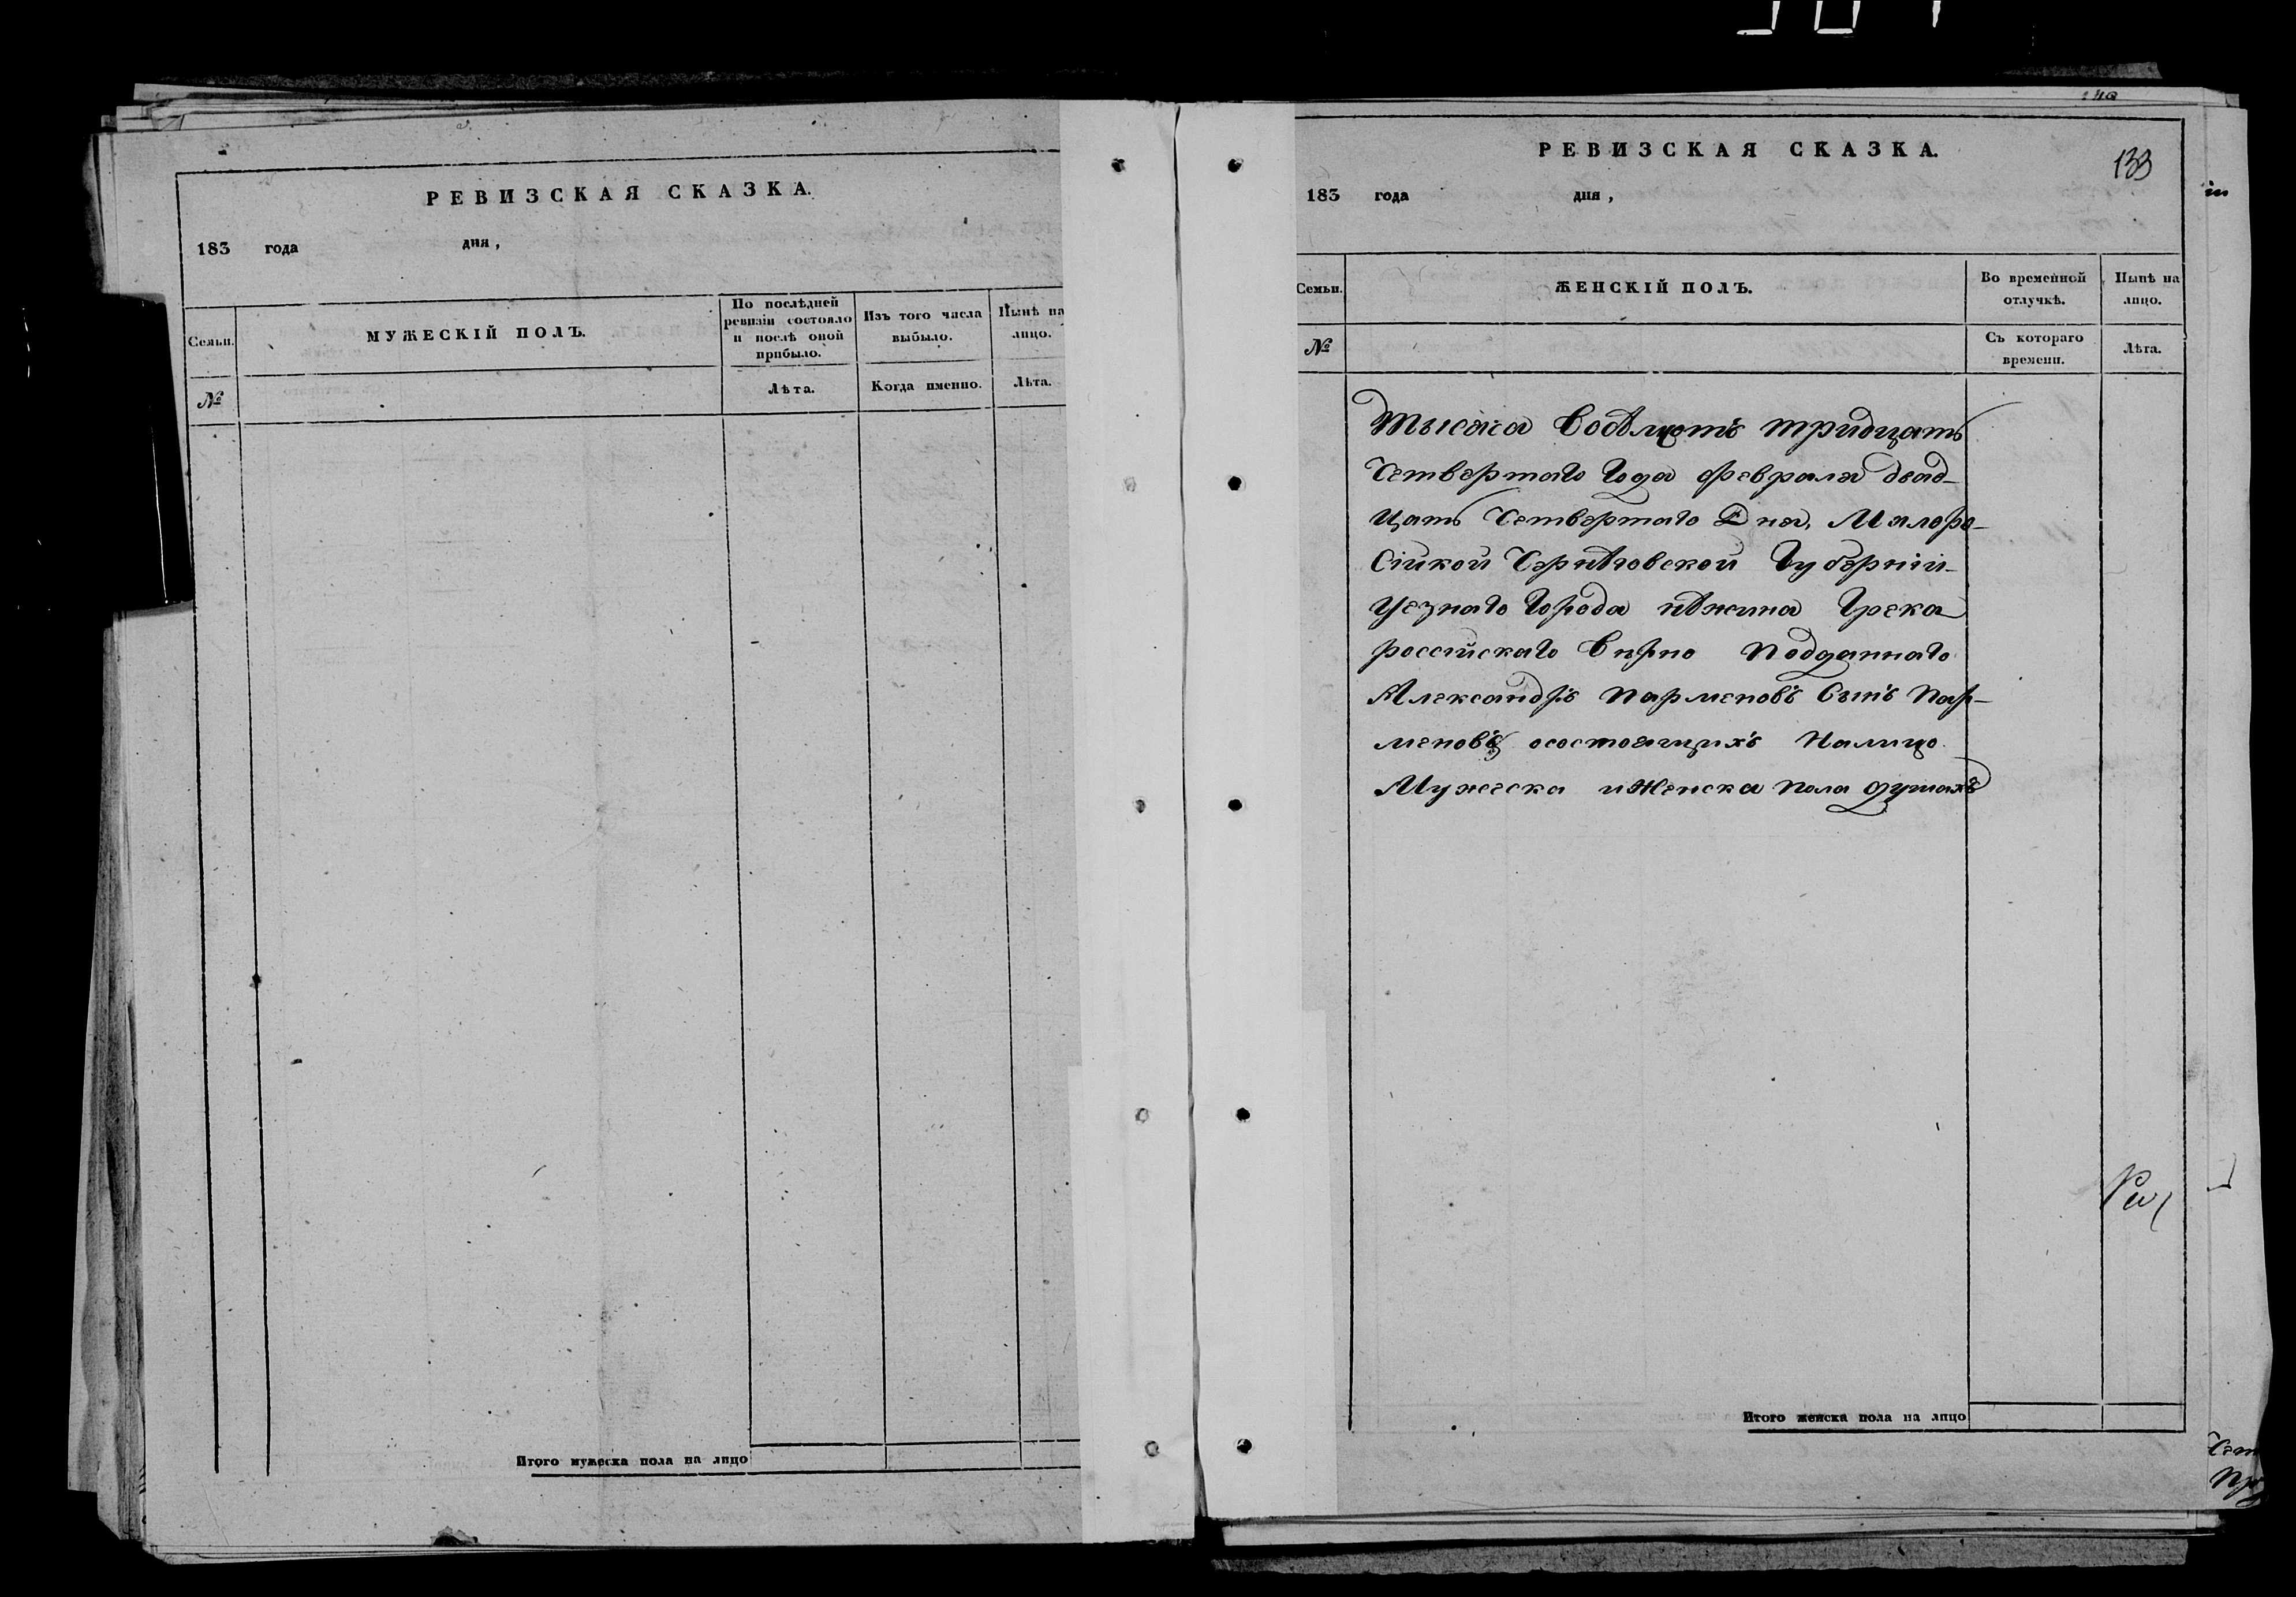 РЕВИЗСКАЯ СКАЗКА.
183 года дня,
Семьи.
МУЖЕСКІЙ ПОЛЪ.
По послѣдней
ревизіи состояло
и послѣ оной
прибыло.
Изъ того числа
выбыло.
Нынѣ на
лицо.
№
Лѣта.
Когда именно.
Лѣта.
Итого мужеска пола на лицо
РЕВИЗСКАЯ СКАЗКА.
133
183 года дня,
Семьи.
ЖЕНСКІЙ ПОЛЪ.
Во временной
отлучкѣ.
Нынѣ на
лицо.
№
Съ котораго
времени.
Лѣта.
Тысяча Восѣмсотъ тридцать
Четвертаго Года февраля двад-
цать Четвертаго Дня, Малоро-
Сійкой Чернѣговской Губерніи-
Уезнаго Города нѣжина Грека
россійскаго Вѣрно Подданнаго
Александръ Парменовъ Сынъ Пар-
меновъ осостоящихъ Налицо
Мужеска иженска Пола душахъ
Итого женска пола на лицо